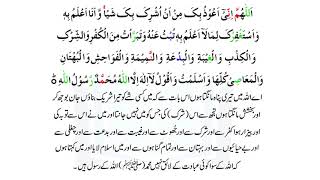 اَللّٰهُمَّ اِنِّیْٓ اَعُوْذُ بِکَ مِنْ اَنْ اُشْرِکَ بِکَ شَیْأً وَّاَنَا اَعْلَمُ بِهٖ
وَاَسْتَغْفِرُکَ لِمَا لَآ اَعْلَمُ بِهٖ تُبْتُ عَنْهُ وَتَبَرَّأْتُ مِنَ الْکُفْرِ وَالشِّرْکِ
وَالْکِذْبِ وَالْغِیْبَةِ وَالْبِدْعَةِ وَالنَّمِیْمَةِ وَالْفَوَاحِشِ وَالْبُهْتَانِ
وَالْمَعَاصِیْ کُلِّهَا وَاَسْلَمْتُ وَاَقُوْلُ لَآ اِلٰهَ اِلَّا اللّٰهُ مُحَمَّدٌ رَّسُوْلُ اللّٰهِ ؕ
اے اللہ میں تیری پناہ مانگتا ہوں اس بات سے کہ میں کسی شے کو تیرا شریک بناؤں جان بوجھ کر
اور بخشش مانگتا ہوں تجھ سے اس (شرک) کی جس کو میں نہیں جانتا اور میں نے اس سے توبہ کی
اور بیزار ہوا کفر سے اور شرک سے اور جھوٹ سے اور غیبت سے اور بدعت سے اور چغلی سے
اور بے حیائیوں سے اور بہتان سے اور تمام گناہوں سے اور میں اسلام لایا اور میں کہتا ہوں
کہ اللہ کے سوا کوئی عبادت کے لائق نہیں محمد (ﷺ) اللہ کے رسول ہیں۔